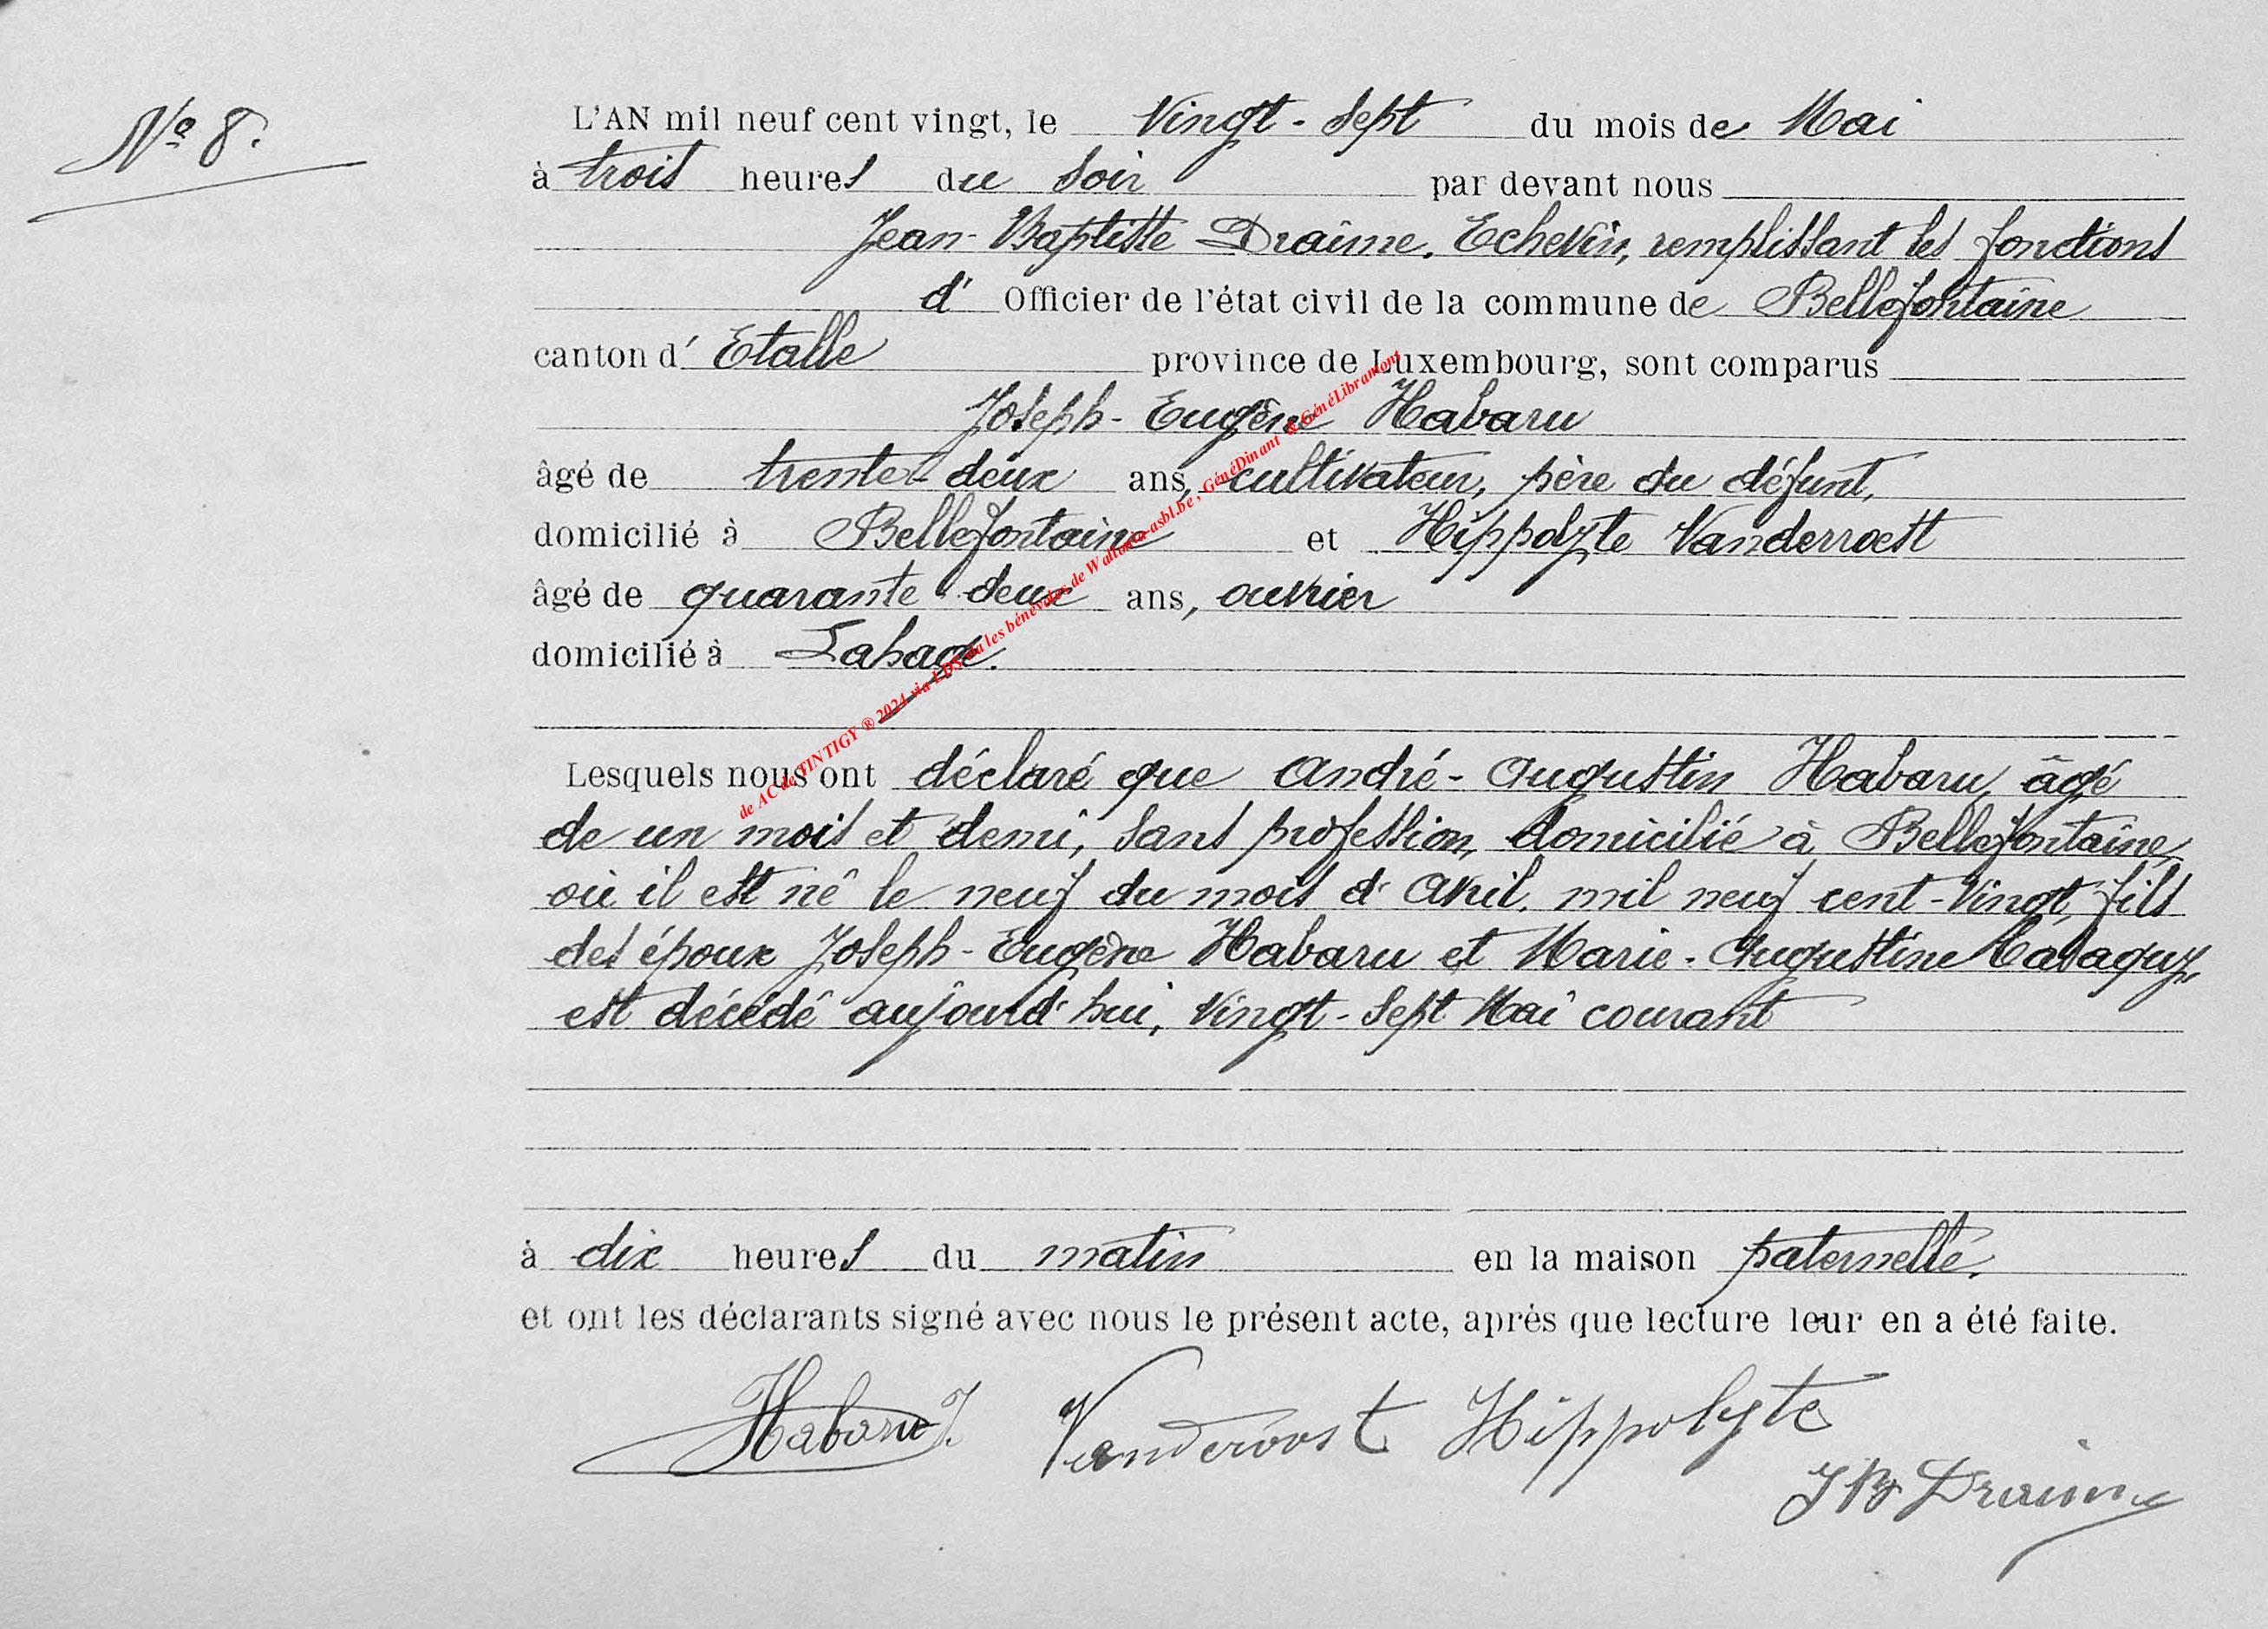 Nº 8.
L'AN mil neuf cent vingt, le Vingt-Sept du mois de Mai
à trois heures du Soir par devant nous
Jean-Baptiste Draime, Echevin, remplissant les fonctions
d' Officier de l'état civil de la commune de Bellefontaine
canton d' Etalle province de Luxembourg, sont comparus
Joseph-Eugène Habaru
âgé de trente-deux ans, cultivateur, père du défunt,
domicilié à Bellefontaine et Hippolyte Vanderroest
âgé de quarante deux ans, ouvrier
domicilié à Lahage.
de AC de TINTIGY ® 2024 via LDS via les bénévoles de Wallonia-asbl.be, GénéDinant & GénéLibramont
Lesquels nous ont déclaré que André-Augustin Habaru, âgé
de un mois et demi, sans profession, domicilié à Bellefontaine,
où il est né le neuf du mois d'Avril, mil neuf cent-vingt, fils
des époux Joseph-Eugène Habaru et Marie-Augustine
est décédé aujourd'hui, Vingt-Sept Mai courant
à dix heures du matin en la maison paternelle.
et ont les déclarants signé avec nous le présent acte, après que lecture leur en a été faite.
Habaru J. Vanderoost Hippolyte
JB Draime